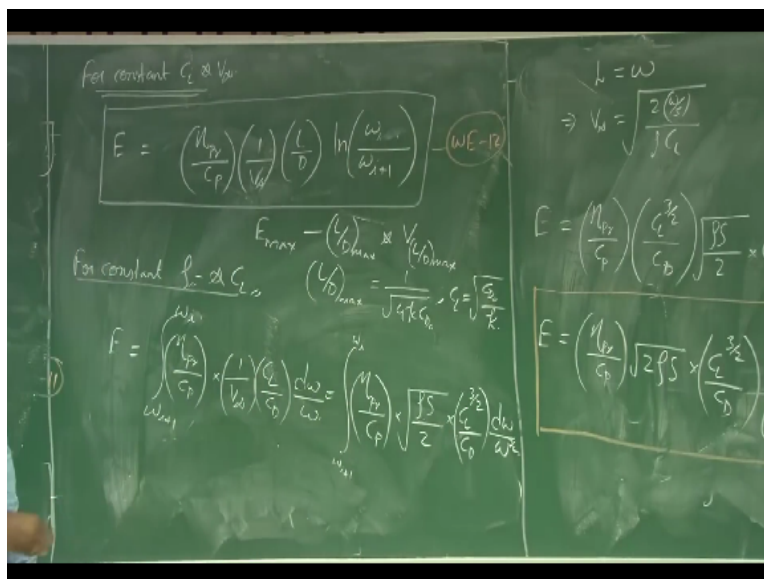 For constant C_L & V_∞
E = (η_pr/C_P) (1/V_∞) (L/D) ln(ω_i/ω_{i+1}) — WE-12
E_max – (L/D)_max & V_(L/D)max
For constant ρ & C_L,
(L/D)_max = 1/√(4kC_D₀), C_L = √(C_D₀/k)
11
E = ∫_{ω_{i+1}}^{ω_i} (η_pr/C_P) × (1/V_∞) (C_L/C_D) dω/ω = ∫_{ω_{i+1}}^{ω_i} (η_pr/C_P) × √(ρS/2) × (C_L^{3/2}/C_D) dω/ω^{3/2}
L = ω
⇒ V_∞ = √(2(ω/S)/ρC_L)
E = (η_pr/C_P) (C_L^{3/2}/C_D) √(ρS/2) ×
E = (η_pr/C_P) √(2ρS) × (C_L^{3/2}/C_D) (